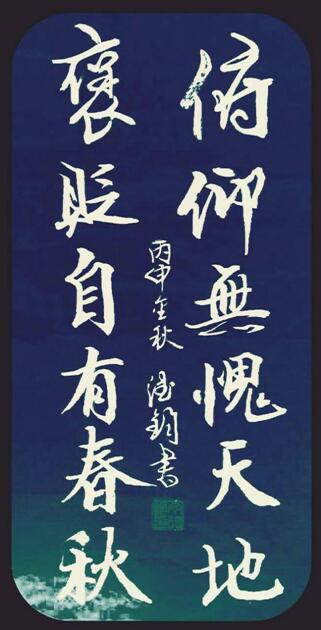 俯仰無愧天地
褒貶自有春秋
丙申金秋
書